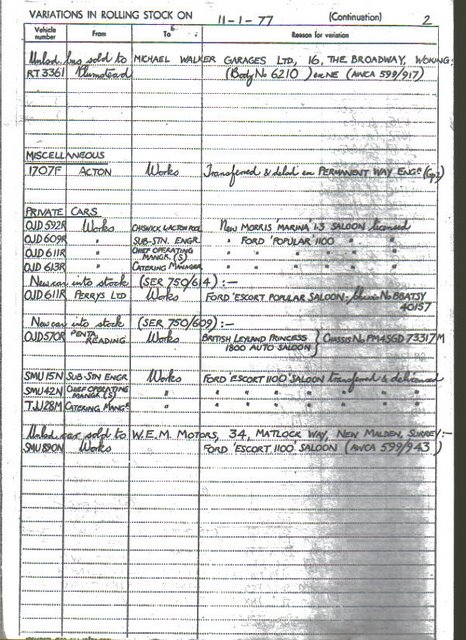 VARIATIONS IN ROLLING STOCK ON 11-1-77 (Continuation) 2
Vehicle number From To Reason for variation
Unlsd. bus sold to MICHAEL WALKER GARAGES LTD, 16, THE BROADWAY, WOKING:
RT3361 Plumstead (Body No 6210) (AWCA 599/917)
MISCELLANEOUS
1707F ACTON Works Transferred & delsd PERMANENT WAY ENGR (Gp2)
PRIVATE CARS
OJD592R Works CHISWICK L/ACTON POOL NEW MORRIS 'MARINA' 1·3 SALOON licensed
OJD609R " SUB-STN. ENGR. " FORD 'POPULAR 1100' " "
OJD611R " CHIEF OPERATING MANGR.(S) " " " " "
OJD613R " CATERING MANAGER " " " " "
New car into stock (SER 750/614) :-
OJD611R PERRYS LTD Works FORD 'ESCORT POPULAR' SALOON; Chassis No BBATSY 40157
New car into stock (SER 750/609) :-
OJD570R PENTA READING Works BRITISH LEYLAND PRINCESS 1800 AUTO SALOON } CHASSIS No. PM4SGD 73317M
SMU15N SUB-STN ENGR Works FORD 'ESCORT 1100' SALOON transferred & delicensed
SMU42M CHIEF OPERATING MANGR (S) " " " " " " "
TJJ128M CATERING MANGR " " " " " " "
Unlsd. car sold to W.E.M. MOTORS, 34, MATLOCK WAY, NEW MALDEN, SURREY:-
SMU890N Works FORD 'ESCORT 1100' SALOON (AWCA 599/943)